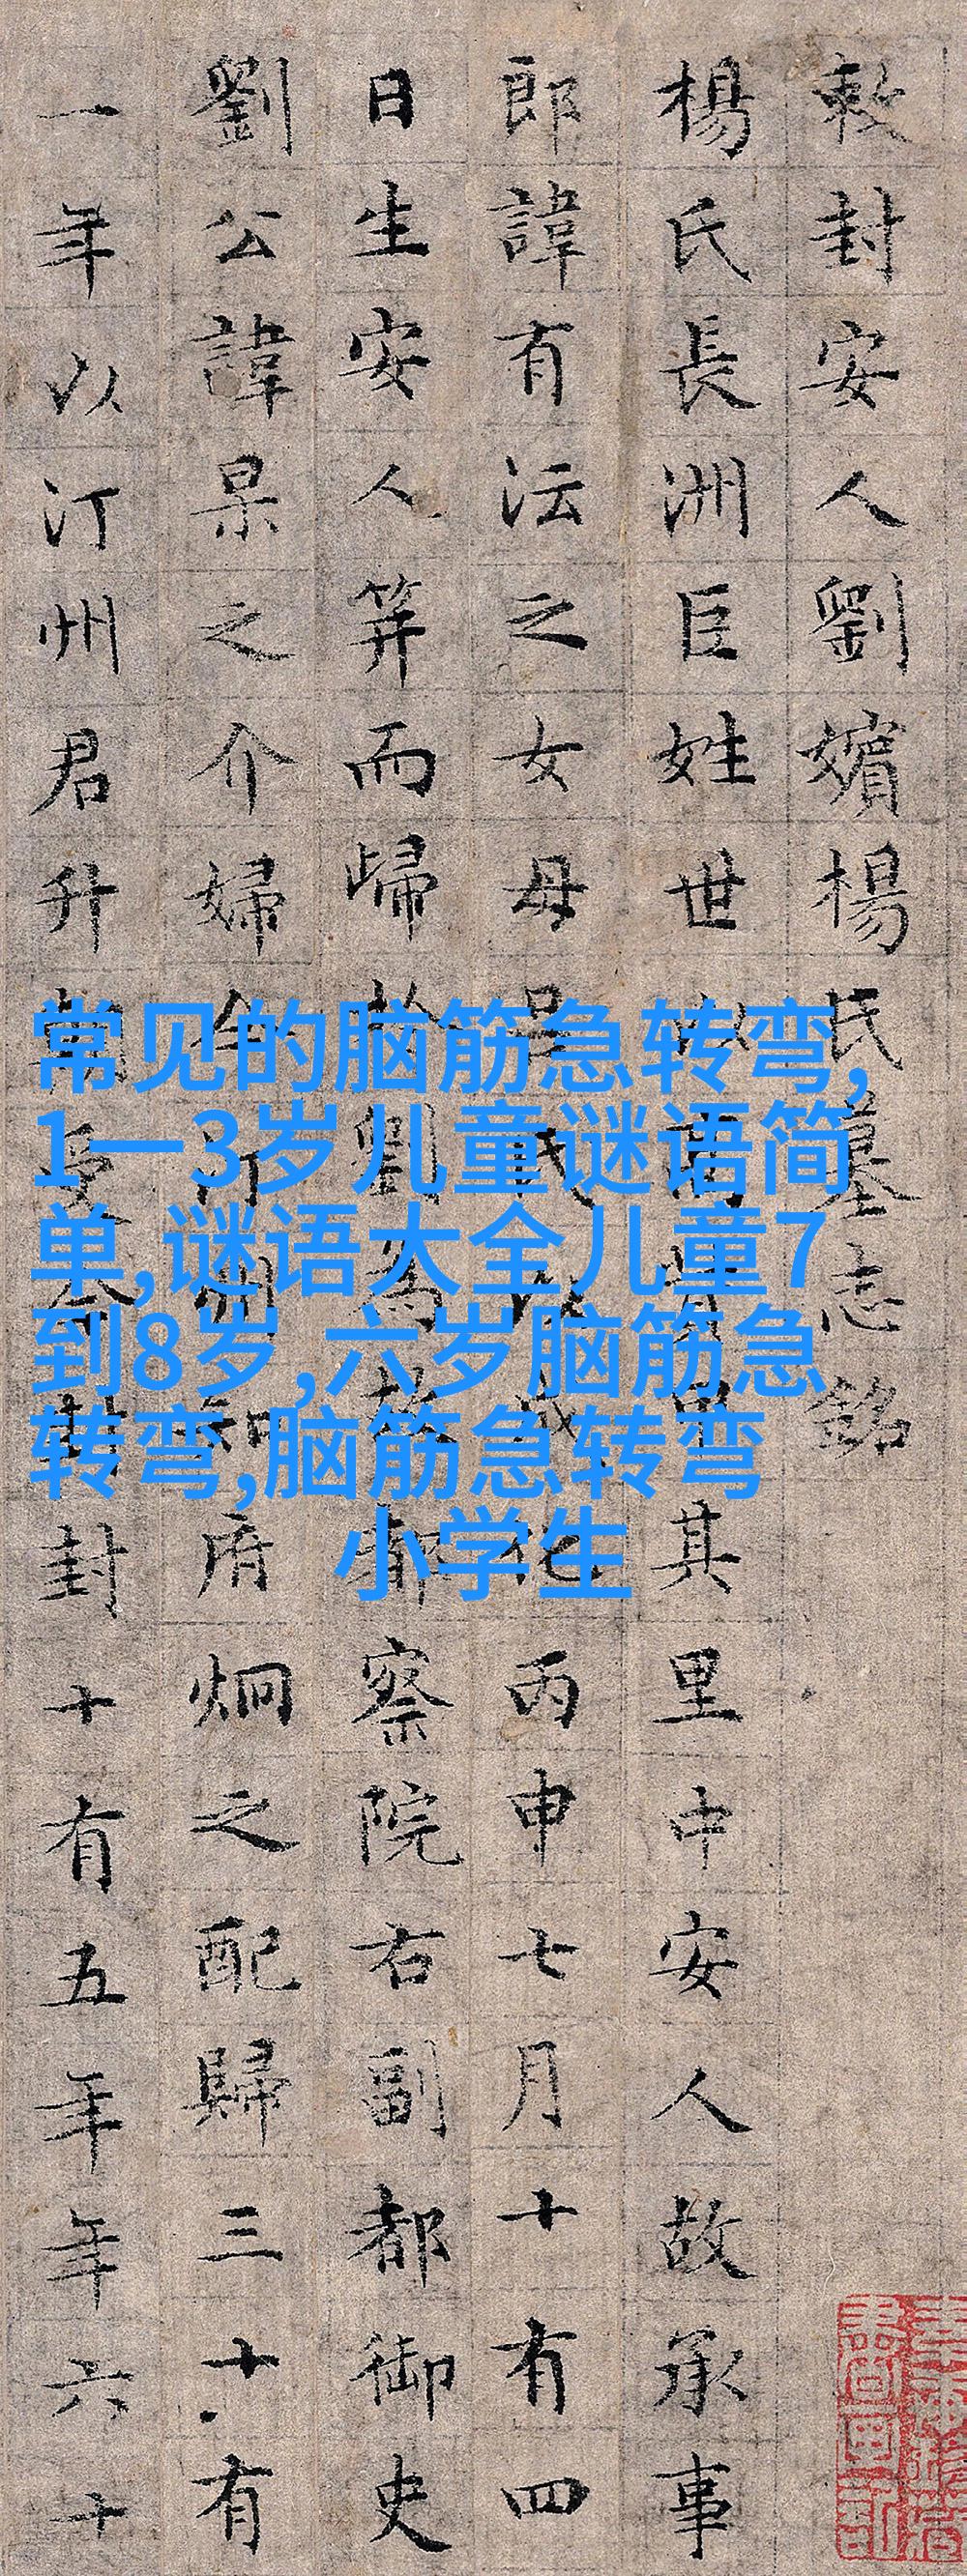 敕封安人劉嬪楊氏墓志銘
楊氏長洲巨姓世甲其里中安人故承事
郎諱有沄之女母吳氏以成化丙申七月十有四
日生安人筓而歸於劉為故都察院右副都御史
劉公諱杲之介婦今汀州知府炯之配歸三十有
一年以汀州君升朝受今封封十有五年年六十
常见的脑筋急转弯,
1一3岁儿童谜语简
单,谜语大全儿童7
到8岁,六岁脑筋急
转弯,脑筋急转弯
小学生